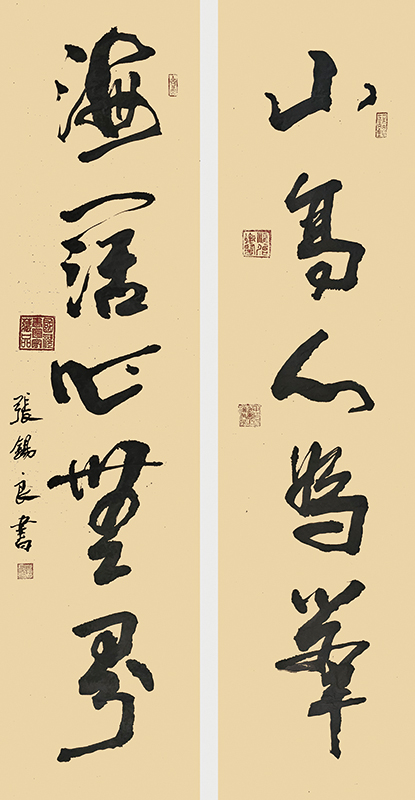 山高人為峯
海闊心無界
張錫良書